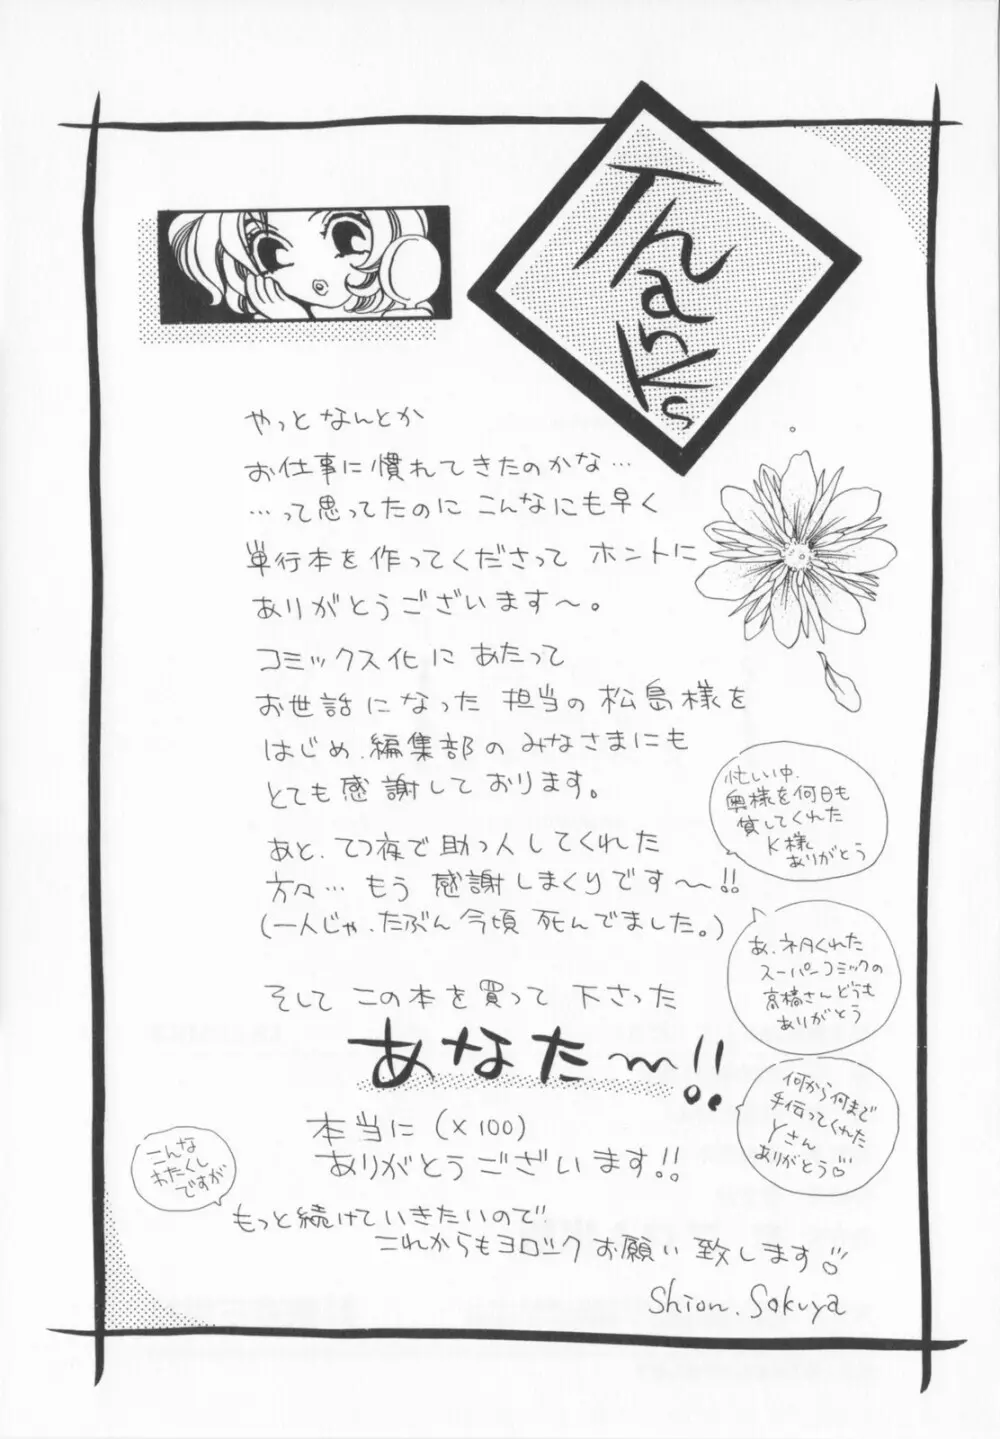 Thanks
やっとなんとか
お仕事に慣れてきたのかな…
…って思ってたのに こんなにも早く
単行本を作ってくださって ホントに
ありがとうございます〜。
コミックス化に あたって
お世話になった 担当の松島様を
はじめ、編集部の みなさまにも
とても感謝しております。
あと、てつ夜で助っ人してくれた
方々… もう 感謝しまくりです〜!!
(一人じゃ、たぶん 今頃 死んでました。)
そして この本を買って 下さった
あなた〜!!
本当に (×100)
ありがとうございます!!
もっと続けていきたいので
これからもヨロシク お願い致します♡
Shion.Sakuya
忙しい中、
奥様を何日も
貸してくれた
K様
ありがとう
あ、ネタくれた
スーパーコミックの
高橋さんどうも
ありがとう
何から何まで
手伝ってくれた
Yさん
ありがとう♡
こんな
わたくし
ですが